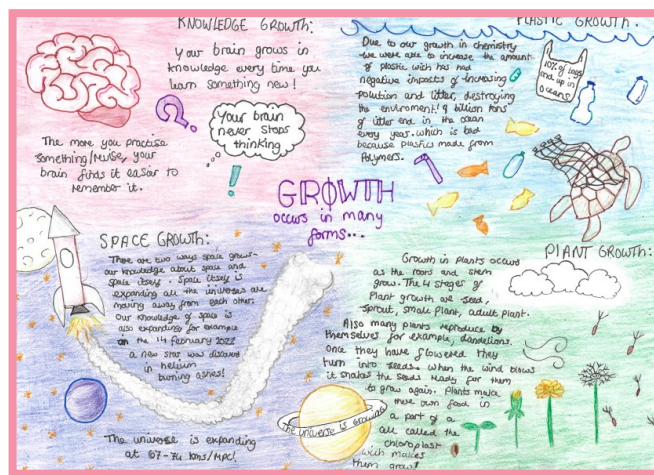 KNOWLEDGE GROWTH:
Your brain grows in
knowledge every time you
learn something new!
Your brain
never stops
thinking
?
!
The more you practise
something/revise, your
brain finds it easier to
remember it.
PLASTIC GROWTH:
Due to our growth in chemistry
we were able to increase the amount
of plastic wich has had
negative impacts of increasing
polution and litter, destroying
the enviroment! 9 billion tons
of litter end in the ocean
every year. which is bad
because plastics made from
Polymers.
10% of bags
end up in
oceans
GROWTH
occurs in many
forms...
SPACE GROWTH:
There are two ways space grows-
our knowledge about space and
space itself. Space itself is
expanding all the universes are
moving away from each other.
Our knowledge of space is
also expanding for example
on the 14 february 2022
a new star was discoverd
in helium
burning ashes!
The universe is expanding
at 67-74 kms/MPC!
The UNIVERSE IS GROWING
PLANT GROWTH:
Growth in plants occurs
as the roots and stem
grow. The 4 stages of
Plant growth are seed,
sprout, small plant, adult plant.
Also many plants reproduce by
themselves for example, dandelions.
Once they have flowered they
turn into seeds. when the wind blows
it shakes the seeds ready for them
to grow again. Plants make
there own food in
a part of a
cell called the
chloroplast
wich makes
them grow!